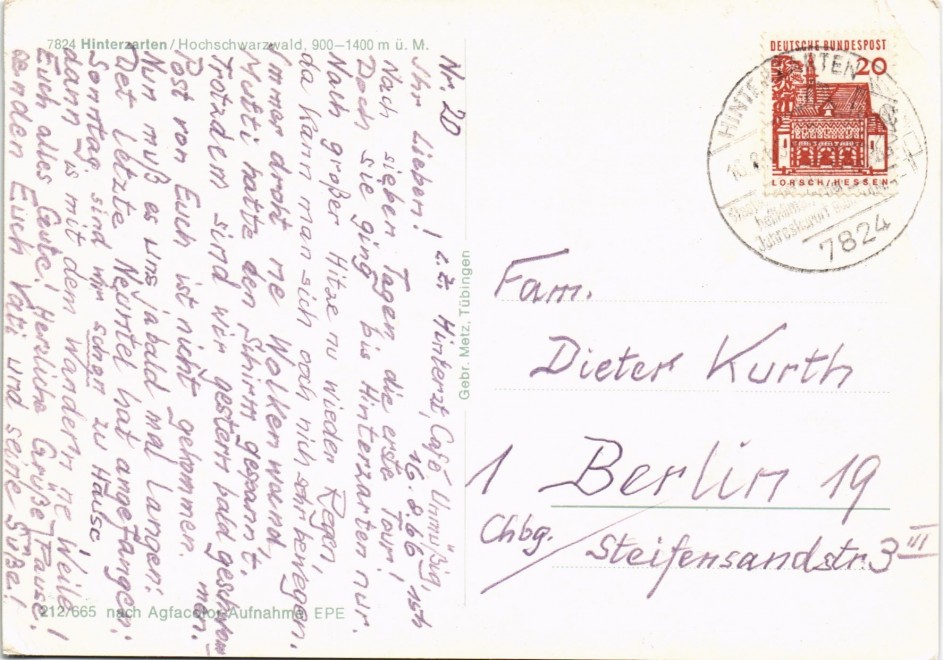 7824 Hinterzarten/Hochschwarzwald, 900–1400 m ü. M.
Nr. 20 z. Zt. Hinterzt, Café Unmüßig,
Ihr Lieben! 16.8.66
Nach sieben Tagen die erste Tour!
Doch sie ging bis Hinterzarten nur.
Nach großer Hitze nu wieder Regen,
da kann man sich och nich sehr bewegen.
Immer droht 'ne Wolkenwand,
Mutti hatte den Schirm gespannt.
Trotzdem sind wir gestern bald geschwommen.
Post von Euch ist nicht gekommen.
Nun muß es uns jabald mal langen:
Det letzte Neuntel hat angefangen.
Sonntag sind wir schon zu Hause,
dann is mit dem Wandern 'ne Weile Pause!
Euch alles Gute! Herzliche Grüße
senden Euch Vati und seine Süße!
Gebr. Metz, Tübingen
212/665 nach Agfacolor-Aufnahme EPE
DEUTSCHE BUNDESPOST
20
LORSCH/HESSEN
HINTERZARTEN
heilklimatischer
Jahreskurort
7824
Fam.
Dieter Kurth
1 Berlin 19
Chbg.
Steifensandstr. 3 III